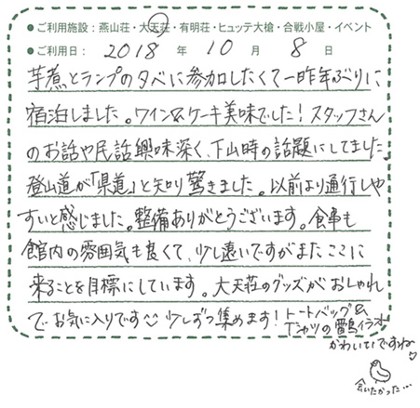 ●ご利用施設：燕山荘・大天荘・有明荘・ヒュッテ大槍・合戦小屋・イベント
●ご利用日： 2018 年 10 月 8 日
芋煮とランプの夕べに参加したくて一昨年ぶりに
宿泊しました。ワイン&ケーキ美味でした！スタッフさん
のお話や民話興味深く、下山時の話題にしてました。
登山道が「県道」と知り驚きました。以前より通行しや
すいと感じました。整備ありがとうございます。食事も
館内の雰囲気も良くて、少し遠いですがまたここに
来ることを目標にしています。大天荘のグッズがおしゃれ
でお気に入りです 少しずつ集めます！トートバッグ&
Tシャツの雷鳥イラスト
かわいいですね♡
会いたかった…